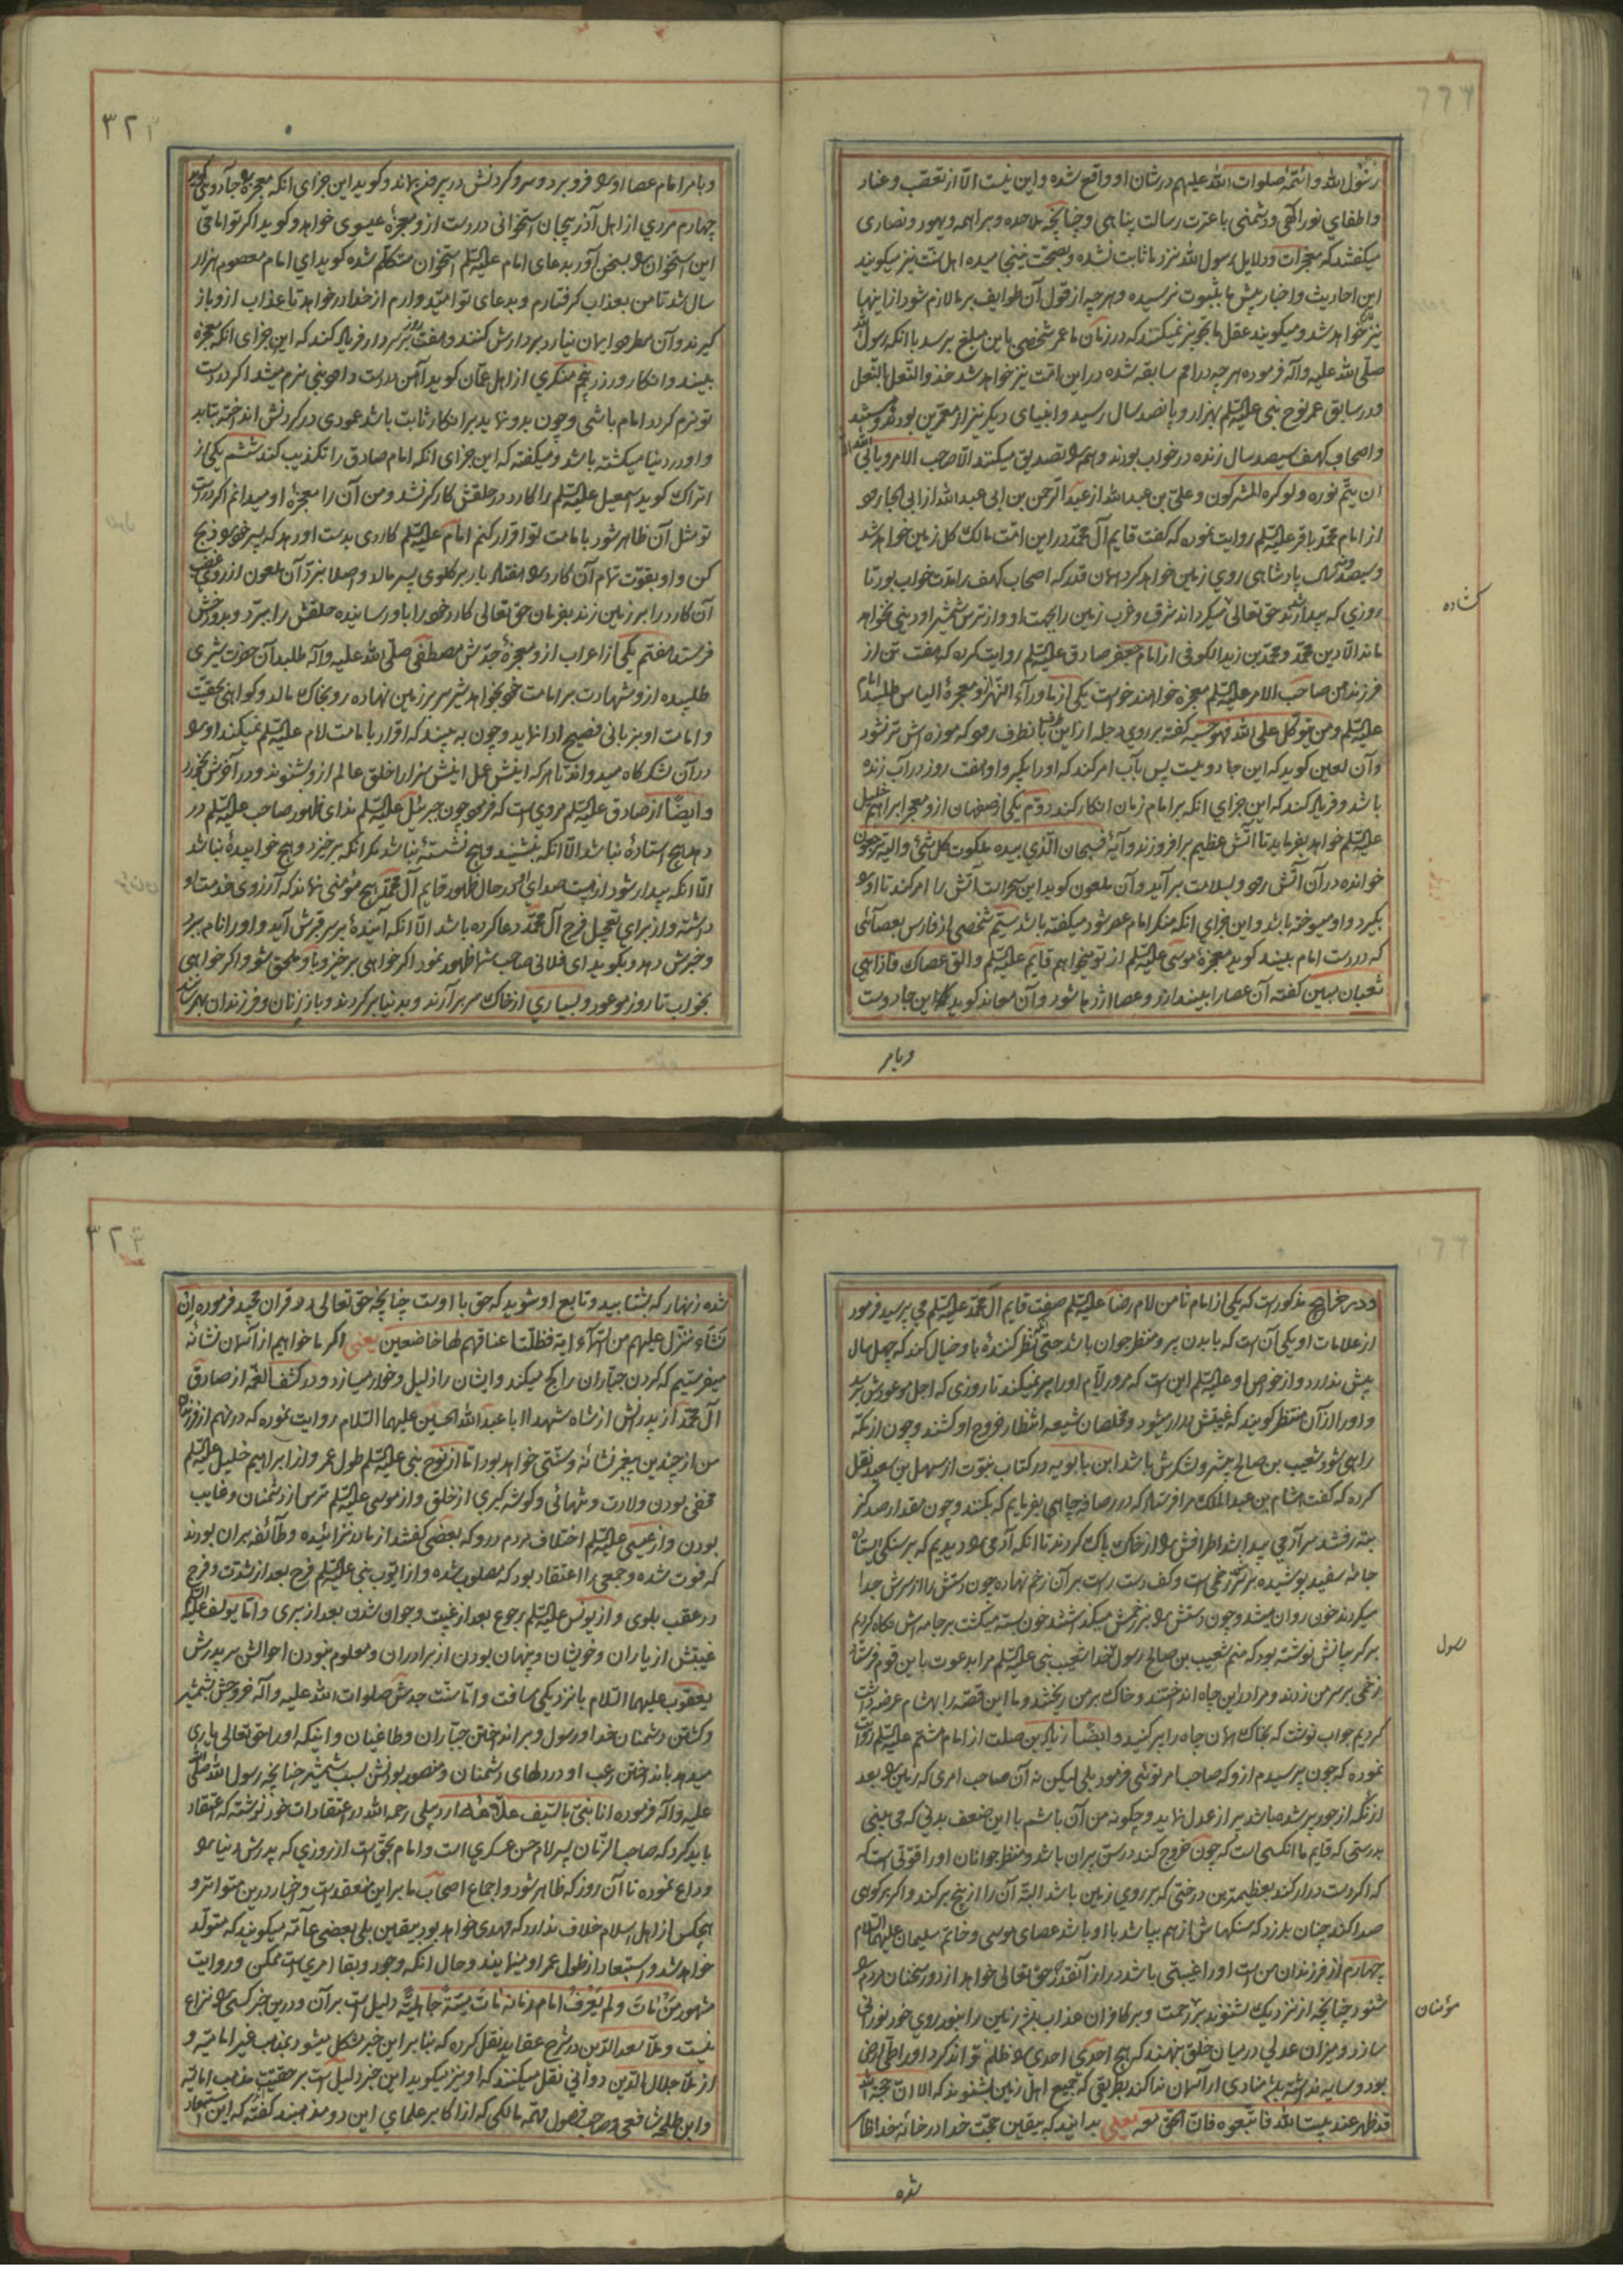 رسول الله وائمّه صلوات الله علیهم درشان او واقع شده واین نیست الّا از تعصّب وعناد
واطفای نور الهی ودشمنی باعترت رسالت پناهی وچنانچه ملاحده وبراهمه ویهود ونصاری
میکفتند که معجزات ودلایل رسول الله نزد ما ثابت نشده وبصحّت نینجامیده اهل سنّت نیز میکویند
این احادیث واخبار پیش ما بثبوت نرسیده وهرچه از قول آن طوایف بر ما لازم شود از اینها
نیز خواهد شد ومیکویند عقل ما تجویز نمیکند که درزمان ما عمر شخصی باین مبلغ برسد با انکه رسول الله
صلّی الله علیه وآله فرموده هرچه درامم سابقه شده دراین امّت نیز خواهد شد حذو النّعل بالنّعل
ودرسابق عمر نوح نبی علیه السّلم بهزار وپانصد سال رسید وانبیای دیکر نیز از معمّرین بودند
واصحاب کهف سیصد سال زنده درخواب بودند وهمه را تصدیق میکنند الّا صاحب الامر ویابی الله الّا
ان یتمّ نوره ولو کره المشرکون وعلیّ بن عبد الله از عبد الرّحمن بن ابی عبد الله از ابی الجارود
از امام محمّد باقر علیه السّلم روایت نموده که کفت قایم آل محمّد دراین امّت مالک کل زمین خواهد شد
وسیصد ونه سال پادشاهی روی زمین خواهد کرد همان قدر که اصحاب کهف را مدّت خواب بود تا
روزی که بیدار شدند حق تعالی میکرداند شرق وغرب زمین را بجهت او واز ترس شمشیر او دینی نخواهد
ماند الّا دین محمّد ومحمّد بن زید الکوفی از امام جعفر صادق علیه السّلم روایت کرده که هفت تن از
فرزند من صاحب الامر علیه السّلم معجزه خواهند خواست یکی از ماورآء النّهر ازو معجزهٔ الیاس طلبد امام
علیه السّلم ومن یتوکّل علی الله فهو حسبه کفته برروی دجله از این طرف بانطرف رود که موزه اش تر نشود
وآن لعین کوید که این جادوییست پس بآب امر کند که او را بکیر واو هفت روز درآب زنده
باشد وفریاد کند که این جزای انکه بر امام زمان انکار کند دوّم یکی از صفهان ازو معجز ابراهیم خلیل
علیه السّلم خواهد بفرماید تا آتش عظیم برافروزند وآیهٔ فسبحان الّذی بیده ملکوت کل شئ والیه ترجعون
خوانده درآن آتش رود وبسلامت برآید وآن ملعون کوید این سحراست آتش را امر کند تا او را
بکیرد واو میسوخته باشد واین جزای انکه منکر امام عصر شود میکفته باشد سیّم شخصی از فارس بعصائی
که دردست امام بیند کوید معجزهٔ موسی علیه السّلم از تو میخواهم قایم علیه السّلم والق عصاک فاذا هی
ثعبان مبین کفته آن عصا را بیندازد وعصا اژدها شود وآن معاند کوید که این جادوست
وبامر
کشاده
٣٢٣
وبامر امام عصا او را فرو برد وسر وکردنش درپیرون بماند وکوید این جزای انکه معجزه را جادویی کوید
چهارم مردی از اهل آذربیجان استخوانی دردست ازو معجزهٔ عیسوی خواهد وکوید اکر تو امامی
این استخوان را بسخن آور بدعای امام علیه السّلم استخوان متکلّم شده کوید ای امام معصوم هزار
سال شد تا من بعذاب کرفتارم وبدعای تو امیدوارم از خدا درخواهد تا عذاب ازو باز
کیرند وآن مطرود ایمان نیارد بردارش کنند وهفت روز برسر دار فریاد کند که این جزای انکه معجزه
بیند وانکار ورزد پنجم منکری از اهل عمّان کوید آهن دردست داود نبی نرم میشد اکر دردست
تو نرم کردد امام باشی وچون بدو نماید بر انکار ثابت باشد عمودی درکردنش انداخته بتابد
واو دردنیا میکشته باشد ومیکفته که این جزای انکه امام صادق را تکذیب کند ششم یکی از
اتراک کوید اسمعیل علیه السّلم را کارد درحلقش کارکر نشد ومن آن را معجزهٔ او میدانم اکر دردست
تو مثل آن ظاهر شود بامامت تو اقرار کنم امام علیه السّلم کاردی بدست او دهد که پسر خود را ذبح
کن واو بقوّت تمام آن کارد را هفتاد بار بر کلوی پسر مالد واصلا نبرد آن ملعون از روی غضب
آن کارد را بر زمین زند بفرمان حق تعالی کارد خود را باو رسانیده حلقش را ببرّد وبدوزخش
فرستد هفتم یکی از اعراب ازو معجزهٔ جدّش مصطفی صلّی الله علیه وآله طلبد آن حضرت شیری
طلبیده ازو شهادت بر امامت خود بخواهد شیر سر بر زمین نهاده رو بخاک مالد وکواهی بحقیّت
وامامت او بزبانی فصیح ادا نماید وچون به بیند که اقرار بامامت امام علیه السّلم نمیکند او را
درآن لشکرکاه میدواند تا هرکه اینش عمل اینش سزا را خلق عالم ازو بشنوند ودرآخرش بخورد
وایضًا از صادق علیه السّلم مرویست که فرمود چون جبرئیل علیه السّلم ندای ظهور صاحب علیه السّلم در
دهد هیچ استادهٔ نباشد الّا انکه بنشیند وهیچ نشستهٔ نباشد مکر انکه برخیزد وهیچ خوابیدهٔ نباشد
الّا انکه بیدار شود از هیبت صدای او ودرحال ظهور قایم آل محمّد هیچ مؤمنی نماند که آرزوی خدمت او
داشته واز برای تعجیل فرج آل محمّد دعا کرده باشد الّا انکه آیندهٔ بر سر قبرش آید واو را نام برد
وخبرش دهد وبکوید ای فلانی صاحب شما ظهور نمود اکر خواهی برخیز وباو ملحق شو واکر خواهی
بخواب تا روز موعود وبسیاری از خاک سر برآرند وبدنیا برکردند وباز زنان وفرزندان بهم رسانند
ودر خرایج مذکورست که یکی از امام ثامن امام رضا علیه السّلم صفت قایم آل محمّد علیه السّلم می پرسید فرمود
از علامات او یکی آن است که بابدن پیر ومنظر جوان باشد حتّی نظر کنندهٔ باو خیال کند که چهل سال
پیش ندارد واز خواص او علیه السّلم این است که مرور ایّام او را پیر نمیکند تا روزی که اجل موعودش برسد
واو را از آن منتظر کویند که غیبتش دراز میشود ومخلصان شیعه انتظار خروج او کشند وچون از مکّه
راهی شود شعیب بن صالح پیشرو لشکرش باشد ابن بابویه درکتاب نبوّت از سهل بن سعید نقل
کرده که کفت هشام بن عبد الملک مرا فرستاد که دررصافه چاهی بفرمایم که بکنند وچون مقدار صد کز
بته رفتند سر آدمی پیدا شد اطرافش را از خاک پاک کردند تا انکه آدمی را دیدیم که بر سنکی ایستاده
جامهٔ سفید پوشیده بر سرش زخمی است وکف دست راست بر آن زخم نهاده چون دستش را از سرش جدا
میکردند خون روان میشد وچون دستش را بر زخمش میکذاشتند خون بسته میکشت بر جامه اش نکاه کردیم
بر کریبانش نوشته بود که منم شعیب بن صالح رسول خدا شعیب نبی علیه السّلم مرا بدعوت باین قوم فرستاد
زخمی بر سر من زدند ومرا دراین چاه انداختند وخاک بر من ریختند وما این قصّه را بهشام عرضه داشت
کردیم جواب نوشت که بخاک همان چاه را پر کنید وایضًا زیاد بن صلت از امام هشتم علیه السّلم روایت
نموده که چون پرسیدم ازو که صاحب امر توئی فرمود بلی لیکن نه آن صاحب امری که زمین را بعد
از انکه از جور پر شده باشد پر از عدل نماید وچکونه من آن باشم با این ضعف بدنی که می بینی
بدرستی که قایم ما انکسی است که چون خروج کند درسنّ پیران باشد ومنظر جوانان او را قوّتی است که
که اکر دست دراز کند بعظیمترین درختی که بر روی زمین باشد البتّه آن را از بیخ برکند واکر برکوهی
صدا کند چنان بلرزد که سنکهاش از هم بپاشد با او باشد عصای موسی وخاتم سلیمان علیهما السّلام
چهارم از فرزندان من است او را غیبتی باشد دراز آنقدر که حق تعالی خواهد از دور سخنان مردم را
شنود چنانچه از نزدیک شنوند بر مؤمنان رحمت وبر کافران عذاب باشد زمین را بنور روی خود نورانی
سازد ومیزان عدل درمیان خلق بنهد که هیچ احدی احدی را ظلم نتواند کرد او را طیّ ارض
بود وسایه نداشته باشد منادی از آسمان ندا کند بطریقی که جمیع اهل زمین بشنوند که الا انّ حجّة الله
قد ظهر عند بیت الله فاتّبعوه فانّ الحق معه یعنی بدانید که بیقین حجّت خدا درخانهٔ خدا ظاهر
شده
رسول
مؤمنان
٣٢٤
شده زنهار که بشتابید وتابع او شوید که حق با اوست چنانچه حق تعالی درقران مجید فرموده ان
نشاء ننزل علیهم من السّمآء ایة فظلّت اعناقهم لها خاضعین یعنی اکر ما خواهیم از آسمان نشانهٔ
میفرستیم که کردن جبّاران را کج میکند وایشان را ذلیل وخوار میسازد ودر کشف الغمّه از صادق
آل محمّد از پدرانش از شاه شهدا ابا عبد الله الحسین علیهما السّلام روایت نموده که درنهم از فرزندان
من از چندین پیغمبر نشانهٔ وسنّتی خواهد بود امّا از نوح نبی علیه السّلم طول عمر واز ابراهیم خلیل علیه السّلم
مخفی بودن ولادت وتنهائی وکوشه کیری از خلق واز موسی علیه السّلم ترس از دشمنان وغایب
بودن واز عیسی علیه السّلم اختلاف مردم درو که بعضی کفتند از مادر نزائیده وطآئفه بر ان بودند
که فوت شده وجمعی را اعتقاد بود که مصلوب شده واز ایّوب نبی علیه السّلم فرج بعد از شدّت وفرح
درعقب بلوی واز یونس علیه السّلم رجوع بعد از غیبت وجوان شدن بعد از پیری وامّا یوسف علیه السّلم
غیبتش از یاران وخویشان وپنهان بودن از برادران ومعلوم نبودن احوالش بر پدرش
یعقوب علیهما السّلام با نزدیکی مسافت وامّا سنّت جدّش صلوات الله علیه وآله خروجش بشمشیر
وکشتن دشمنان خدا ورسول وبر انداختن جبّاران وطاغیان واینکه او را حق تعالی یاری
میدهد بانداختن رعب او دردلهای دشمنان ومنصور بودنش بسبب شمشیر چنانچه رسول الله صلّی الله
علیه وآله فرموده انا نبیّ بالسّیف علّامهٔ اردبیلی رحمه الله دراعتقادات خود نوشته که اعتقاد
باید کرد که صاحب الزّمان پسر امام حسن عسکری است وامام بحق است از روزی که پدرش دنیا را
وداع نموده تا آن روز که ظاهر شود واجماع اصحاب ما بر این منعقدست واخبار درین متواتر و
هیچکس از اهل اسلام خلاف ندارد که مهدی خواهد بود بیقین بلی بعضی عامّه میکویند که متولّد
خواهد شد واستبعاد از طول عمر او مینمایند وحال انکه وجود وبقا امری است ممکن وروایت
مشهور من مات ولم یعرف امام زمانه مات میتة جاهلیّة دلیل است بر آن ودرین خبر کسی را نزاع
نیست وملّا سعد الدّین درشرح عقاید نقل کرده که بنا بر این خبر مشکل میشود بمذهب غیر امامیّه و
از ملّا جلال الدّین دوانی نقل میکنند که او نیز میکوید این خبر دلیل است بر حقیّت مذهب امامیّه
وابن طلحهٔ شافعی وصاحب فصول مهمّه مالکی که از اکابر علمای این دو مذهبند کفته که این استبعاد